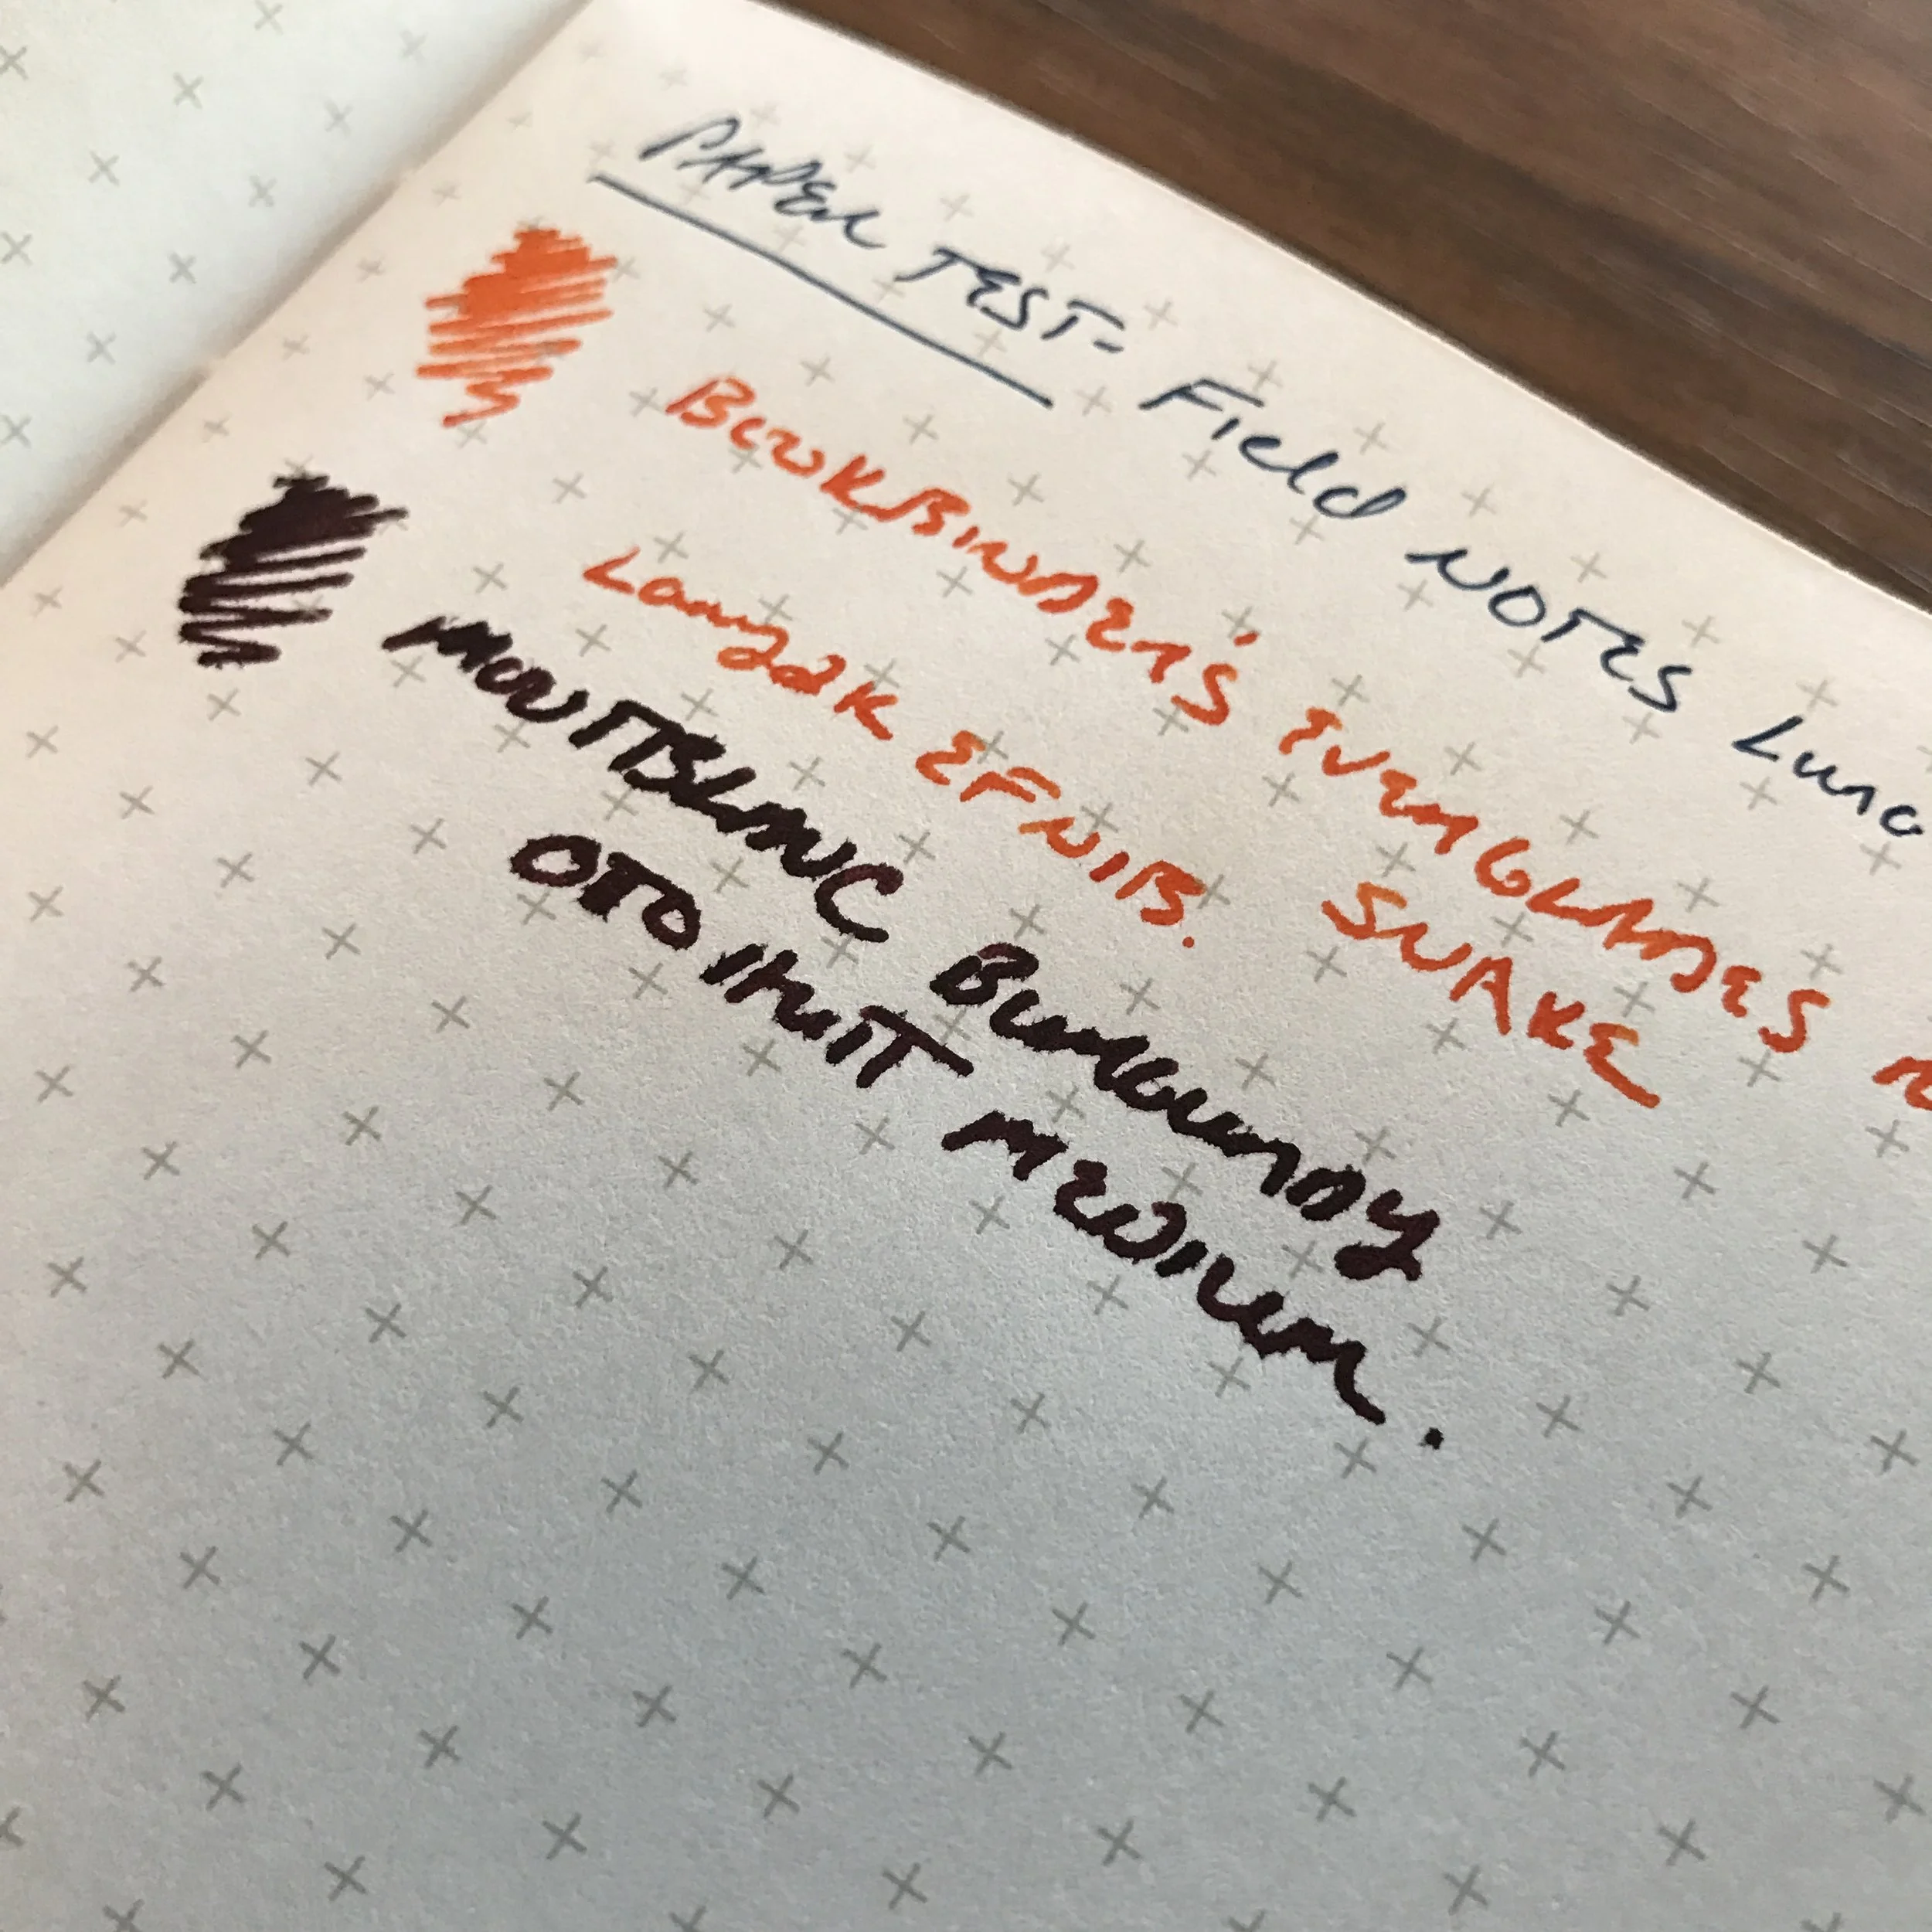 PAPER TEST- Field NOTES Luna
BOOKBINDER'S EVERGLADES
SNAKE
Lamy2K EF NIB.
MONTBLANC BURGUNDY
OTO HUIT MEDIUM.